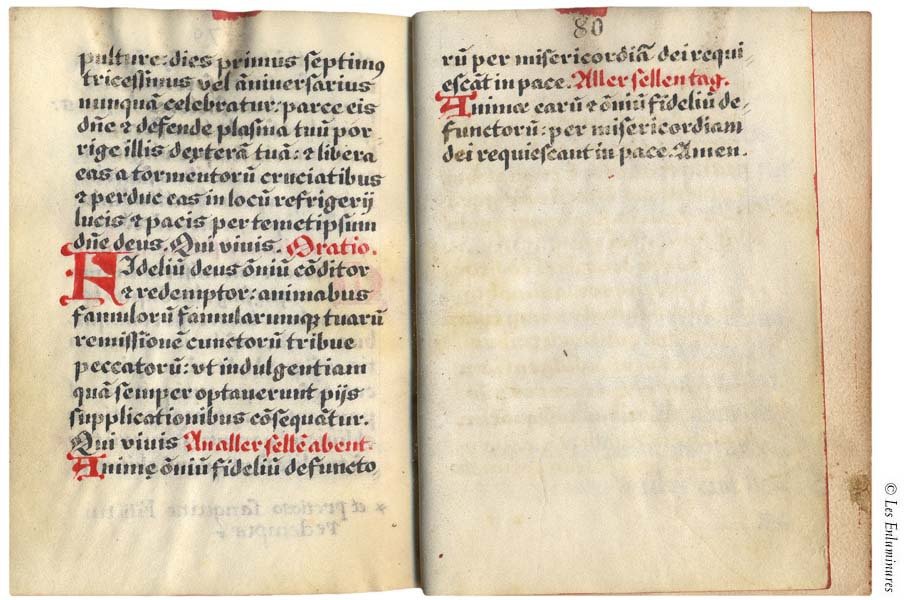 pulture: dies primus septimꝰ
tricessimus vel āniversarius
nunquā celebratur: parce eis
dn̄e ⁊ defende plasma tuū por⸗
rige illis dexterā tuā: ⁊ libera
eas a tormentorū cruciatibus
⁊ perduc eas in locū refrigerij
lucis ⁊ pacis per temetipsum
dn̄e deus. Qui vivis. Oratio.
Fideliū deus ōniū cōditor
⁊ redemptor: animabus
famulorū famularumqꝫ tuarū
remissionē cunctorū tribue
peccatorū: vt indulgentiam
quā semper optaverunt pijs
supplicationibus cōsequātur.
Qui vivis An aller sellē abent.
Animę ōniū fideliū defuncto
80
rū per misericordiā dei requi⸗
escāt in pace. Aller sellen tag.
Animæ earū ⁊ ōniū fideliū de⸗
functorū: per misericordiam
dei requiescant in pace. Amen.
© Les Enluminures